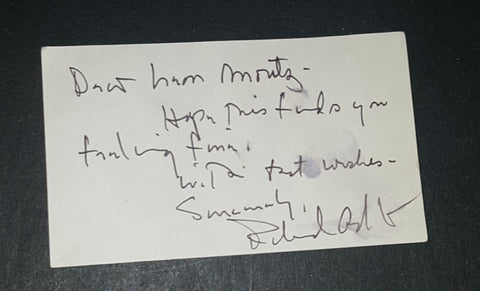 Dear Moritz-
Hope this finds you
feeling fine.
With best wishes-
Sincerely,